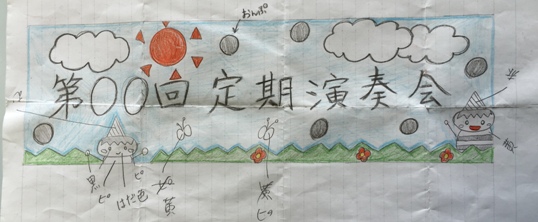 おんぷ
第〇〇回定期演奏会
黒
ピ
はだ色
ピ
黄
ピ